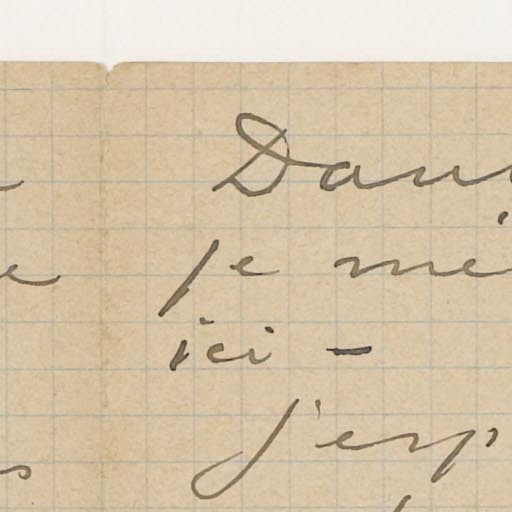 Dans
je mé
ici -
j'esp